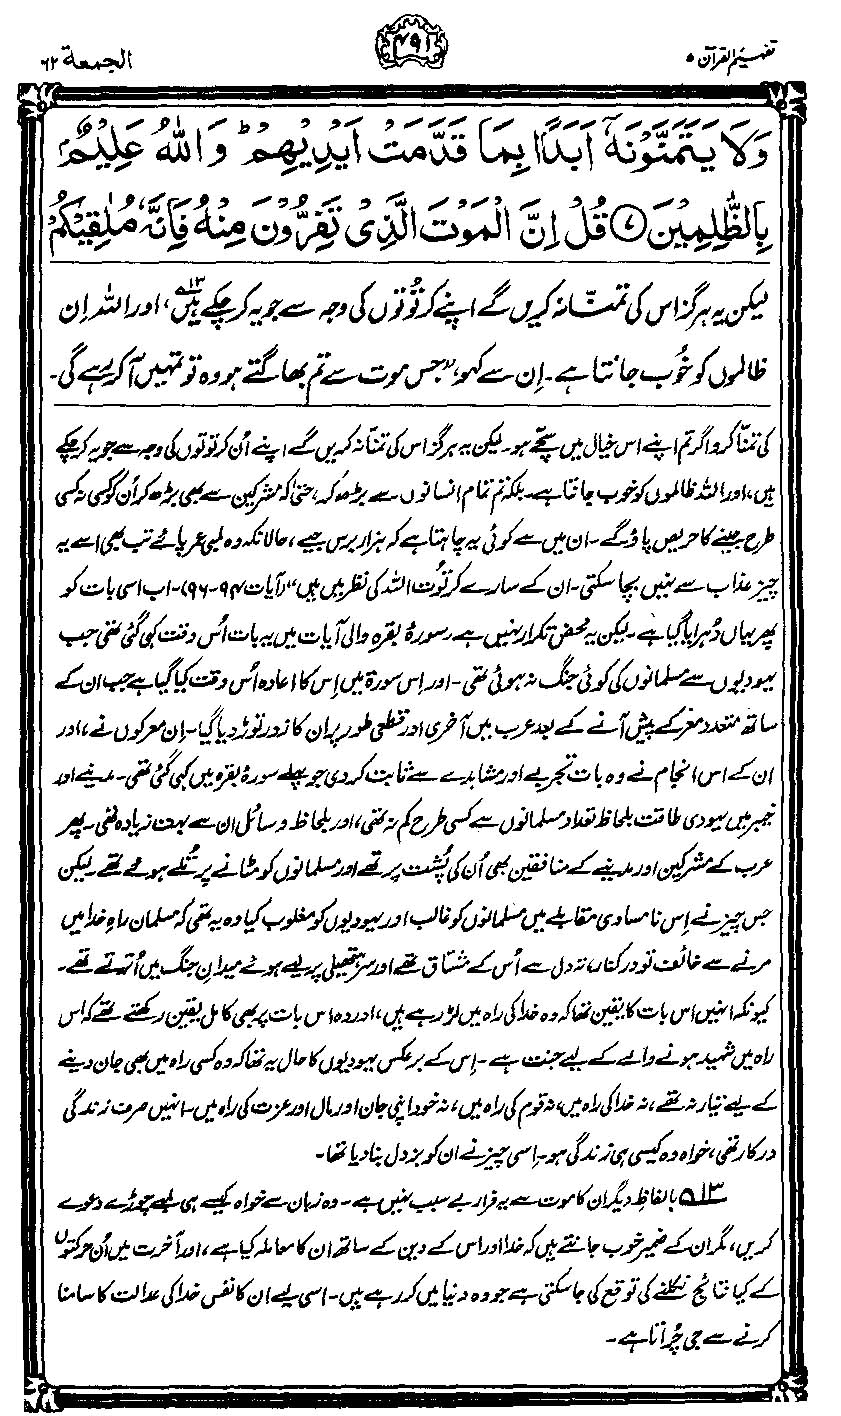 تفہیم القرآن ۵
۴۹۱
الجمعۃ ۶۲
وَلَا يَتَمَنَّوْنَهٗۤ اَبَدًۢا بِمَا قَدَّمَتْ اَيْدِيْهِمْ ؕ وَاللّٰهُ عَلِيْمٌۢ
بِالظّٰلِمِيْنَ ﴿۷﴾ قُلْ اِنَّ الْمَوْتَ الَّذِيْ تَفِرُّوْنَ مِنْهُ فَاِنَّهٗ مُلٰقِيْكُمْ
لیکن یہ ہرگز اس کی تمنّا نہ کریں گے اپنے کرتُوتوں کی وجہ سے جو یہ کر چکے ہیں۱۳، اور اللہ اِن
ظالموں کو خُوب جانتا ہے۔ اِن سے کہو، ”جس موت سے تم بھاگتے ہو وہ تو تمہیں آکر رہے گی۔
کی تمنّا کرو اگر تم اپنے اس خیال میں سچّے ہو۔ لیکن یہ ہرگز اس کی تمنّا نہ کریں گے اپنے اُن کرتوتوں کی وجہ سے جو یہ کر چکے
ہیں، اور اللہ ظالموں کو خوب جانتا ہے۔ بلکہ تم تمام انسانوں سے بڑھ کر، حتیٰ کہ مشرکین سے بھی بڑھ کر اُن کو کسی نہ کسی
طرح جینے کا حریص پاؤ گے۔ ان میں سے کوئی یہ چاہتا ہے کہ ہزار برس جیے، حالانکہ وہ لمبی عمر پائے تب بھی اسے یہ
چیز عذاب سے نہیں بچا سکتی۔ ان کے سارے کرتُوت اللہ کی نظر میں ہیں“ (آیات ۹۴-۹۶)۔ اب اسی بات کو
پھر یہاں دُہرایا گیا ہے۔ لیکن یہ محض تکرار نہیں ہے۔ سورۂ بقرہ والی آیات میں یہ بات اُس وقت کہی گئی تھی جب
یہودیوں سے مسلمانوں کی کوئی جنگ نہ ہوئی تھی۔ اور اِس سورۃ میں اِس کا اعادہ اُس وقت کیا گیا ہے جب ان کے
ساتھ متعدد معرکے پیش آنے کے بعد عرب میں آخری اور قطعی طور پر ان کا زور توڑ دیا گیا۔ اِن معرکوں نے، اور
ان کے اس انجام نے وہ بات تجربے اور مشاہدے سے ثابت کر دی جو پہلے سورۂ بقرہ میں کہی گئی تھی۔ مدینے اور
خیبر میں یہودی طاقت بلحاظ تعداد مسلمانوں سے کسی طرح کم نہ تھی، اور بلحاظ وسائل ان سے بہت زیادہ تھی۔ پھر
عرب کے مشرکین اور مدینے کے منافقین بھی اُن کی پُشت پر تھے اور مسلمانوں کو مٹانے پر تُلے ہوئے تھے۔ لیکن
جس چیز نے اِس نامساوی مقابلے میں مسلمانوں کو غالب اور یہودیوں کو مغلوب کیا وہ یہ تھی کہ مسلمان راہِ خدا میں
مرنے سے خائف تو درکنار، تہ دل سے اُس کے مشتاق تھے اور سر ہتھیلی پر لیے ہوئے میدانِ جنگ میں اُترتے تھے۔
کیونکہ انہیں اس بات کا یقین تھا کہ وہ خدا کی راہ میں لڑ رہے ہیں، اور وہ اس بات پر بھی کامل یقین رکھتے تھے کہ اس
راہ میں شہید ہونے والے کے لیے جنت ہے۔ اِس کے برعکس یہودیوں کا حال یہ تھا کہ وہ کسی راہ میں بھی جان دینے
کے لیے تیار نہ تھے، نہ خدا کی راہ میں، نہ قوم کی راہ میں، نہ خود اپنی جان اور مال اور عزت کی راہ میں۔ انہیں صرف زندگی
درکار تھی، خواہ وہ کیسی ہی زندگی ہو۔ اِسی چیز نے ان کو بزدل بنا دیا تھا۔
۱۳ بالفاظِ دیگر ان کا موت سے یہ فرار بے سبب نہیں ہے۔ وہ زبان سے خواہ کیسے ہی لمبے چوڑے دعوے
کریں، مگر ان کے ضمیر خوب جانتے ہیں کہ خدا اور اس کے دین کے ساتھ ان کا معاملہ کیا ہے، اور آخرت میں اُن حرکتوں
کے کیا نتائج نکلنے کی توقع کی جا سکتی ہے جو وہ دنیا میں کر رہے ہیں۔ اسی لیے ان کا نفس خدا کی عدالت کا سامنا
کرنے سے جی چُراتا ہے۔